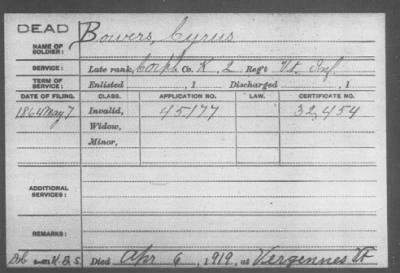 DEAD
Bowers, Cyrus
NAME OF SOLDIER:
SERVICE: Late rank, Corpl Co. K, 2 Reg't Vt. Inf
TERM OF SERVICE: Enlisted , 1 Discharged , 1
DATE OF FILING. CLASS. APPLICATION NO. LAW. CERTIFICATE NO.
1864 May 7 Invalid, 45177 32,454
Widow,
Minor,
ADDITIONAL SERVICES:
REMARKS:
Died Apr 6, 1919, at Vergennes Vt